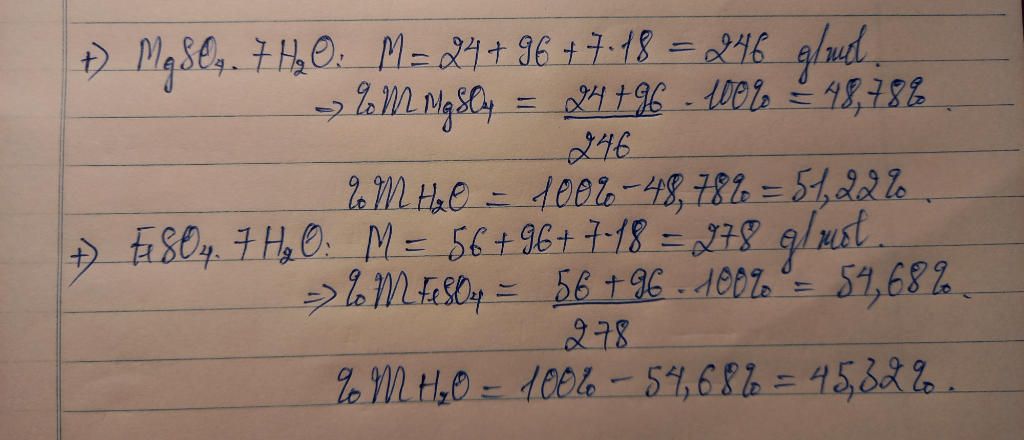 +) MgSO₄.7H₂O: M = 24 + 96 + 7·18 = 246 g/mol.
=> %m MgSO₄ = (24+96)/246 · 100% = 48,78%.
%m H₂O = 100% - 48,78% = 51,22%.
+) FeSO₄.7H₂O: M = 56 + 96 + 7·18 = 278 g/mol.
=> %m FeSO₄ = (56+96)/278 · 100% = 54,68%.
%m H₂O = 100% - 54,68% = 45,32%.